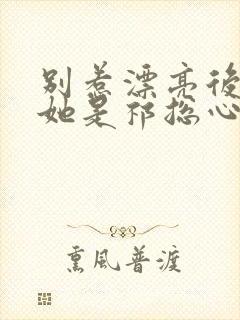 别惹漂亮後
她是祁总心
熏風普渡